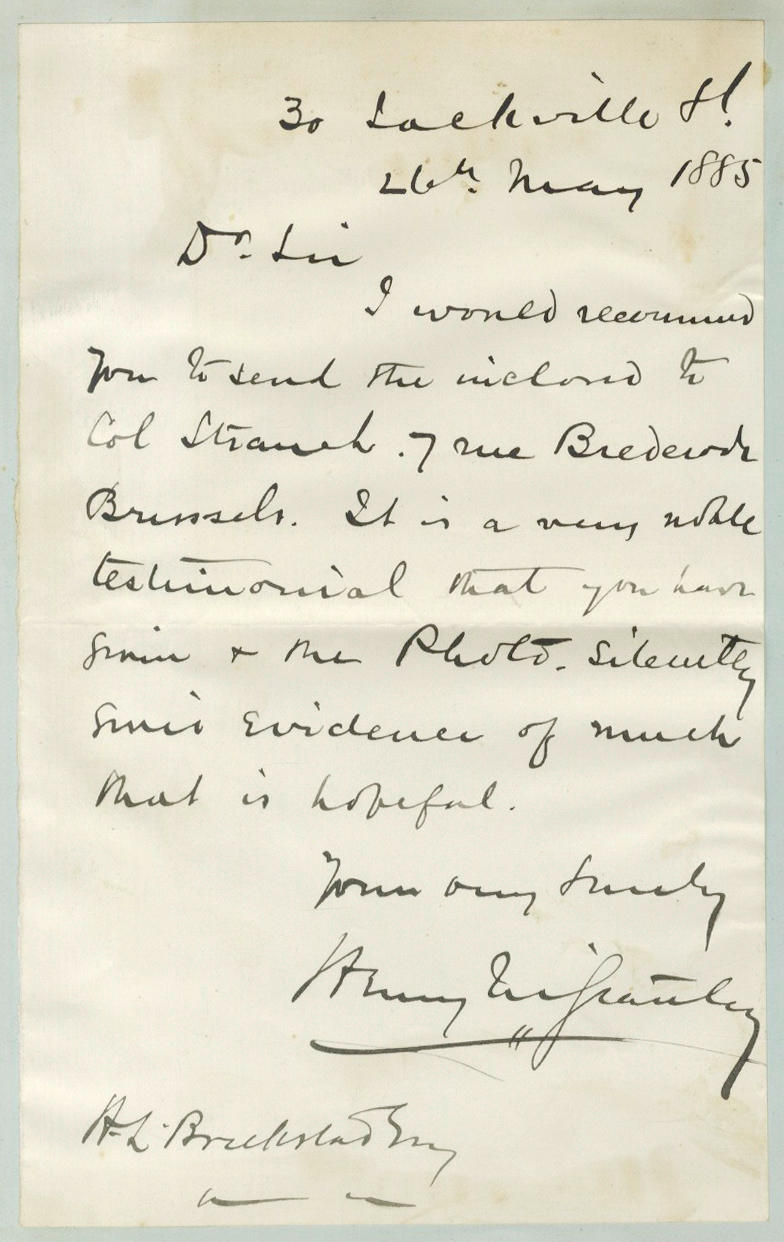 30 Sackville St.
26th May 1885
Dr. Sir
I would recommend
you to send the inclosed to
Col Strauch. 7 rue Brederode
Brussels. It is a very noble
testimonial that you have
given & the Photo. silently
gives evidence of much
that is hopeful.
Yours very sincerely
Henry M Stanley
H. L. Brækstad Esq